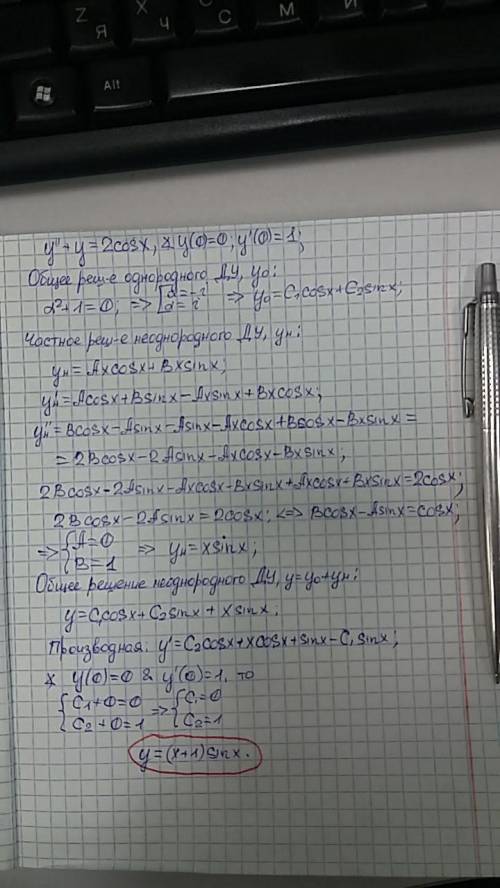 Z Я
X Ч
C С
М
И
Alt
y''+y=2cosx, ∡ y(0)=0; y'(0)=1;
Общее реш-е однородного ДУ, y₀:
α²+1=0; => [α=-i α=i => y₀=C₁cosx+C₂sinx;
Частное реш-е неоднородного ДУ, yн:
yн=Axcosx+Bxsinx;
y'н=Acosx+Bsinx-Axsinx+Bxcosx;
y''н=Bcosx-Asinx-Asinx-Axcosx+Bcosx-Bxsinx=
=2Bcosx-2Asinx-Axcosx-Bxsinx;
2Bcosx-2Asinx-Axcosx-Bxsinx+Axcosx+Bxsinx=2cosx;
2Bcosx-2Asinx=2cosx; <=> Bcosx-Asinx=cosx;
=> {A=0 B=1 => yн=xsinx;
Общее решение неоднородного ДУ, y=y₀+yн:
y=C₁cosx+C₂sinx+xsinx;
Производная: y'=C₂cosx+xcosx+sinx-C₁sinx;
∡ y(0)=0 & y'(0)=1, то
{C₁+0=0 C₂+0=1 => {C₁=0 C₂=1
y=(x+1)sinx.